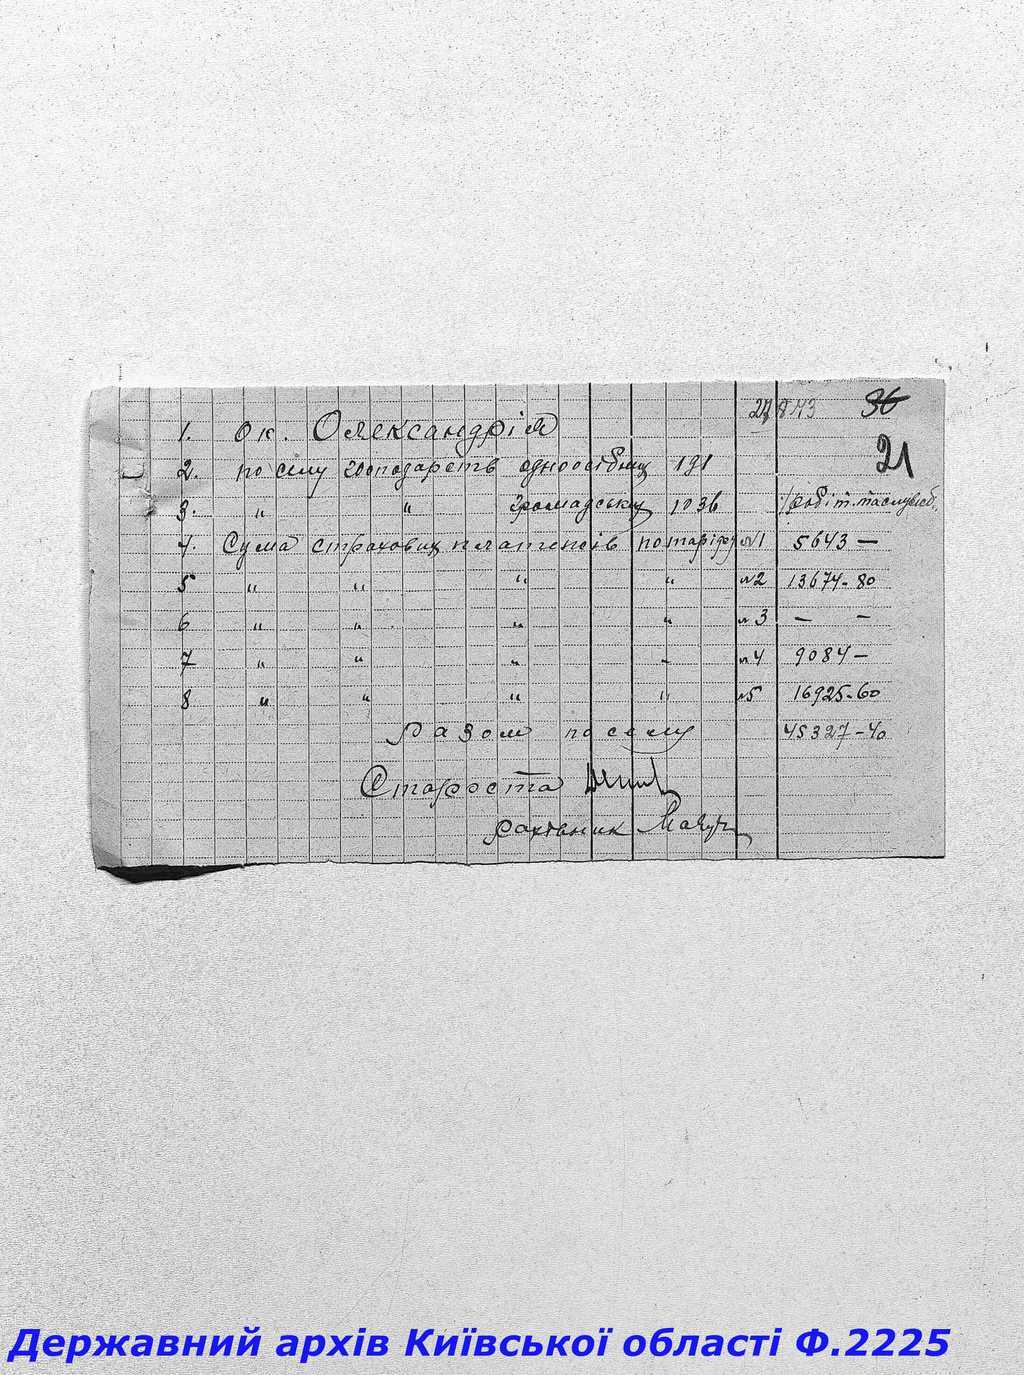 36
21
1. ок. Олександрія
2. по селу господарств одноосібниц 191
3. " " Громадських 1036 / робіт. та служб.
4. Сума страхових платежів по тарифу №1 5643 —
5 " " " " №2 13674-80
6 " " " " №3 — —
7 " " " " №4 9084 —
8 " " " " №5 16925-60
Разом по селу 45327-40
Староста
рахівник
Державний архів Київської області Ф.2225